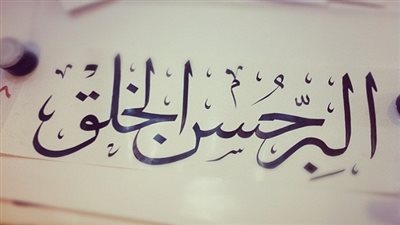 البِرّ حُسن الخلق